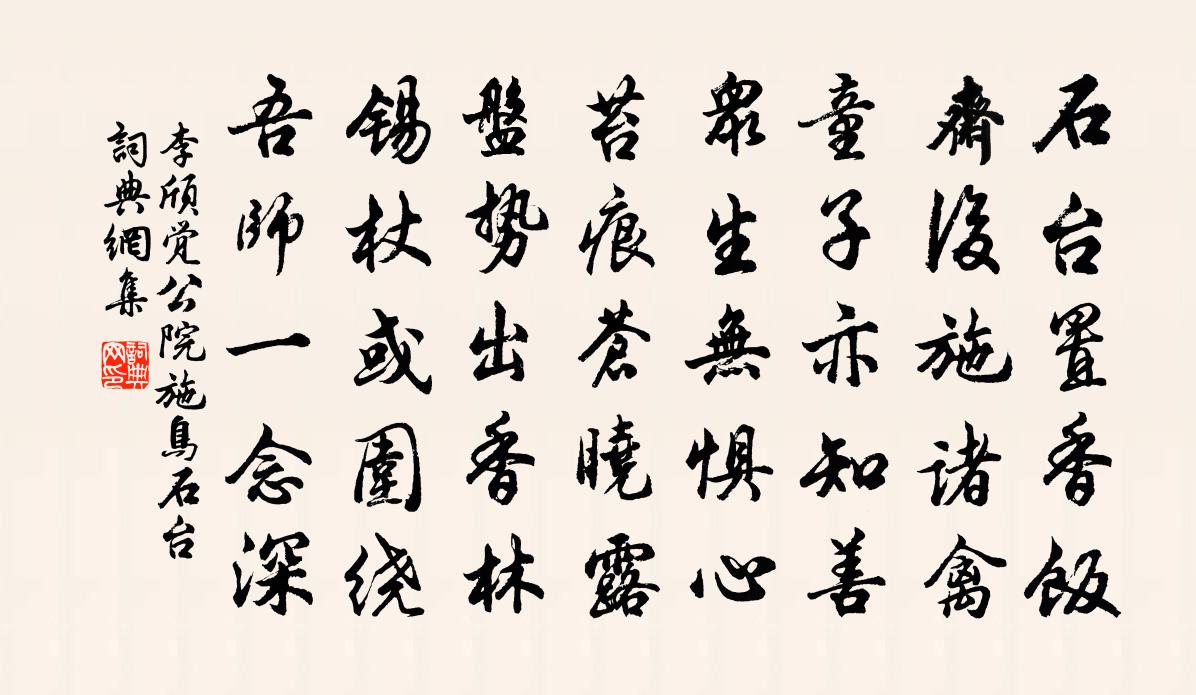 石台置香飯
齋後施諸禽
童子亦知善
眾生無惧心
苔痕蒼曉露
盤势出香林
锡杖或圍绕
吾師一念深
李頎觉公院施鳥石台
詞典網集
詞典网印